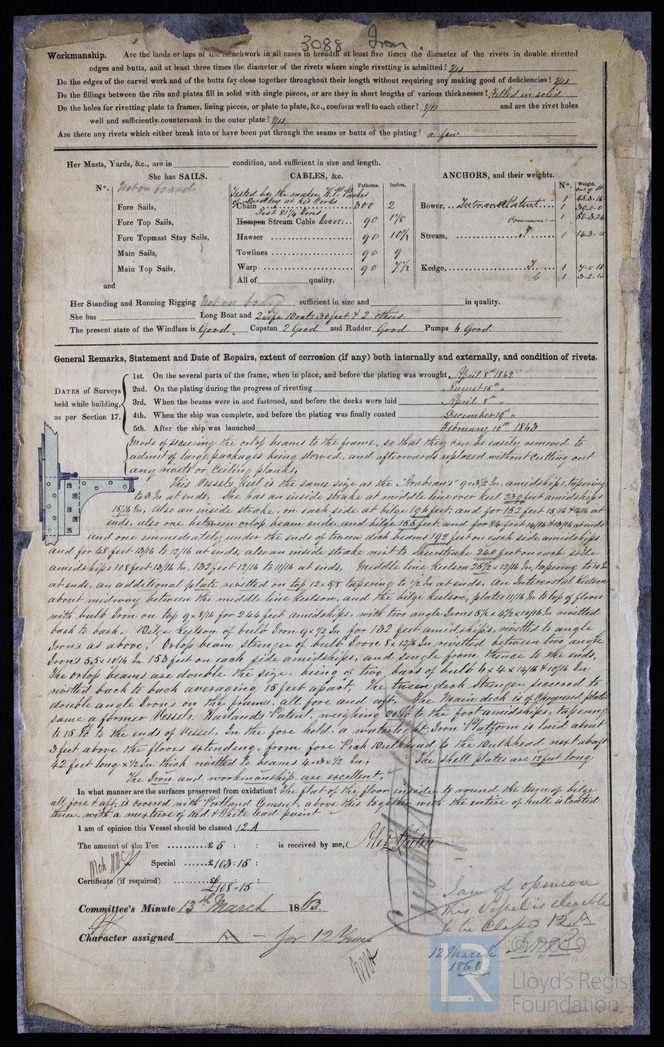 3088 Iron
Workmanship. Are the lands or laps of the clenchwork in all cases in breadth at least five times the diameter of the rivets in double rivetted
edges and butts, and at least three times the diameter of the rivets where single rivetting is admitted? Yes
Do the edges of the carvel work and of the butts fay close together throughout their length without requiring any making good of deficiencies? Yes
Do the fillings between the ribs and plates fill in solid with single pieces, or are they in short lengths of various thicknesses? Filled in solid
Do the holes for rivetting plate to frames, lining pieces, or plate to plate, &c., conform well to each other? Yes and are the rivet holes
well and sufficiently countersunk in the outer plate? Yes
Are there any rivets which either break into or have been put through the seams or butts of the plating? a few
Her Masts, Yards, &c., are in condition, and sufficient in size and length.
She has SAILS. CABLES, &c. Fathoms. Inches. ANCHORS, and their weights. Nº. Weight.
Nº. Not on board
Tested by the maker
Fore Sails, Chain 300 2 Bower, Patent 1
Test 81¼ tons
Fore Top Sails, Hempen Stream Cable 90 1⅛ Common 1
Fore Topmast Stay Sails, Hawser 90 10½ Stream, 1
Main Sails, Towlines 90 9
Main Top Sails, Warp 90 7½ Kedge, 1
and All of quality. 1
Her Standing and Running Rigging Not on board sufficient in size and in quality.
She has Long Boat and 2 Life Boats 30 feet & 2 others
The present state of the Windlass is Good Capstan 2 Good and Rudder Good Pumps 6 Good
General Remarks, Statement and Date of Repairs, extent of corrosion (if any) both internally and externally, and condition of rivets.
DATES of Surveys held while building, as per Section 17.
1st. On the several parts of the frame, when in place, and before the plating was wrought April 8th 1862
2nd. On the plating during the progress of rivetting August 15th "
3rd. When the beams were in and fastened, and before the decks were laid April 8th "
4th. When the ship was complete, and before the plating was finally coated December 19th "
5th. After the ship was launched February 10th 1863
Mode of securing the orlop beams to the frame, so that they can be easily removed to
admit of large packages being stowed, and afterwards replaced without cutting out
any rivets or Ceiling planks.
This Vessels keel is the same size as the "Arabians" 9 x 3½ In. amidships, tapering
to 3 In at ends. She has an inside strake at middle line over keel 232 feet amidships
15/16 In, also an inside strake, on each side at bilge 196 feet and for 152 feet 15/16 & 14/16 at
ends, also one between orlop beam ends, and bilge 156 feet and for 84 feet 14/16 & 13/16 at ends
and one immediately under the ends of tween deck beams 192 feet on each side amidships
and for 48 feet 13/16 to 12/16 at ends, also an inside strake next to sheerstrake 240 feet on each side
amidships 108 feet 13/16 In. 132 feet 12/16 to 11/16 at ends. Middle line keelson 25½ x 12/16 In, tapering to
at ends, an additional plate rivitted on top 12 x 5/8 tapering to ½ In at ends. An Intercostal Keelson
about midway between the middle line keelson, and the bilge keelson, plates 11/16 In to top of floors
with bulb Iron on top 9 x 8/16 for 244 feet amidships, with two angle Irons 5½ x 4½ x 10/16 In rivitted
back to back. Bilge keelson of bulb Iron 9 x ½ In for 132 feet amidships, rivitted to angle
Irons as above. Orlop beam Stringer of bulb Iron 8 x 12/16 In rivitted between two angle
Irons 5,5 x 10/16 In 153 feet on each side amidships, and single from thence to the ends.
The orlop beams are double the size, being of two bars of bulb 6 x 4 x 14/16 & 10/16 In
rivitted back to back averaging 15 feet apart, the tween deck Stringer secured to
double angle Irons on the frame, all fore and aft. The Main deck is of Chequered plates
same a former Vessels. Harlands Patent, weighing to the foot amidships, tapering
to 15 lb to the ends of Vessel. In the fore hold, a watertight Iron Platform is laid about
3 feet above the floors extending from fore Peak Bulkhead to the Bulkhead next abaft
42 feet long x ½ In thick rivitted to beams 4 x 3 x ½ In; The shell plates are 12 feet long
The Iron and workmanship, are excellent;
In what manner are the surfaces preserved from oxidation? The flat of the floor inside, to round the turn of bilge
all fore & aft, is covered with Portland Cement, above this together with the entire of hull is Coated
with a mixture of Red & White lead paint
I am of opinion this Vessel should be classed 12 A
The amount of the Fee £5 : : is received by me,
Special £103:15 :
Certificate (if required) :
£108-15
Committee's Minute 13th March 1863
Character assigned A - for 12 Years
I am of opinion
this Vessel is eligible
to be Classed 12 A
12 March
1863
LR Lloyd's Register
Foundation